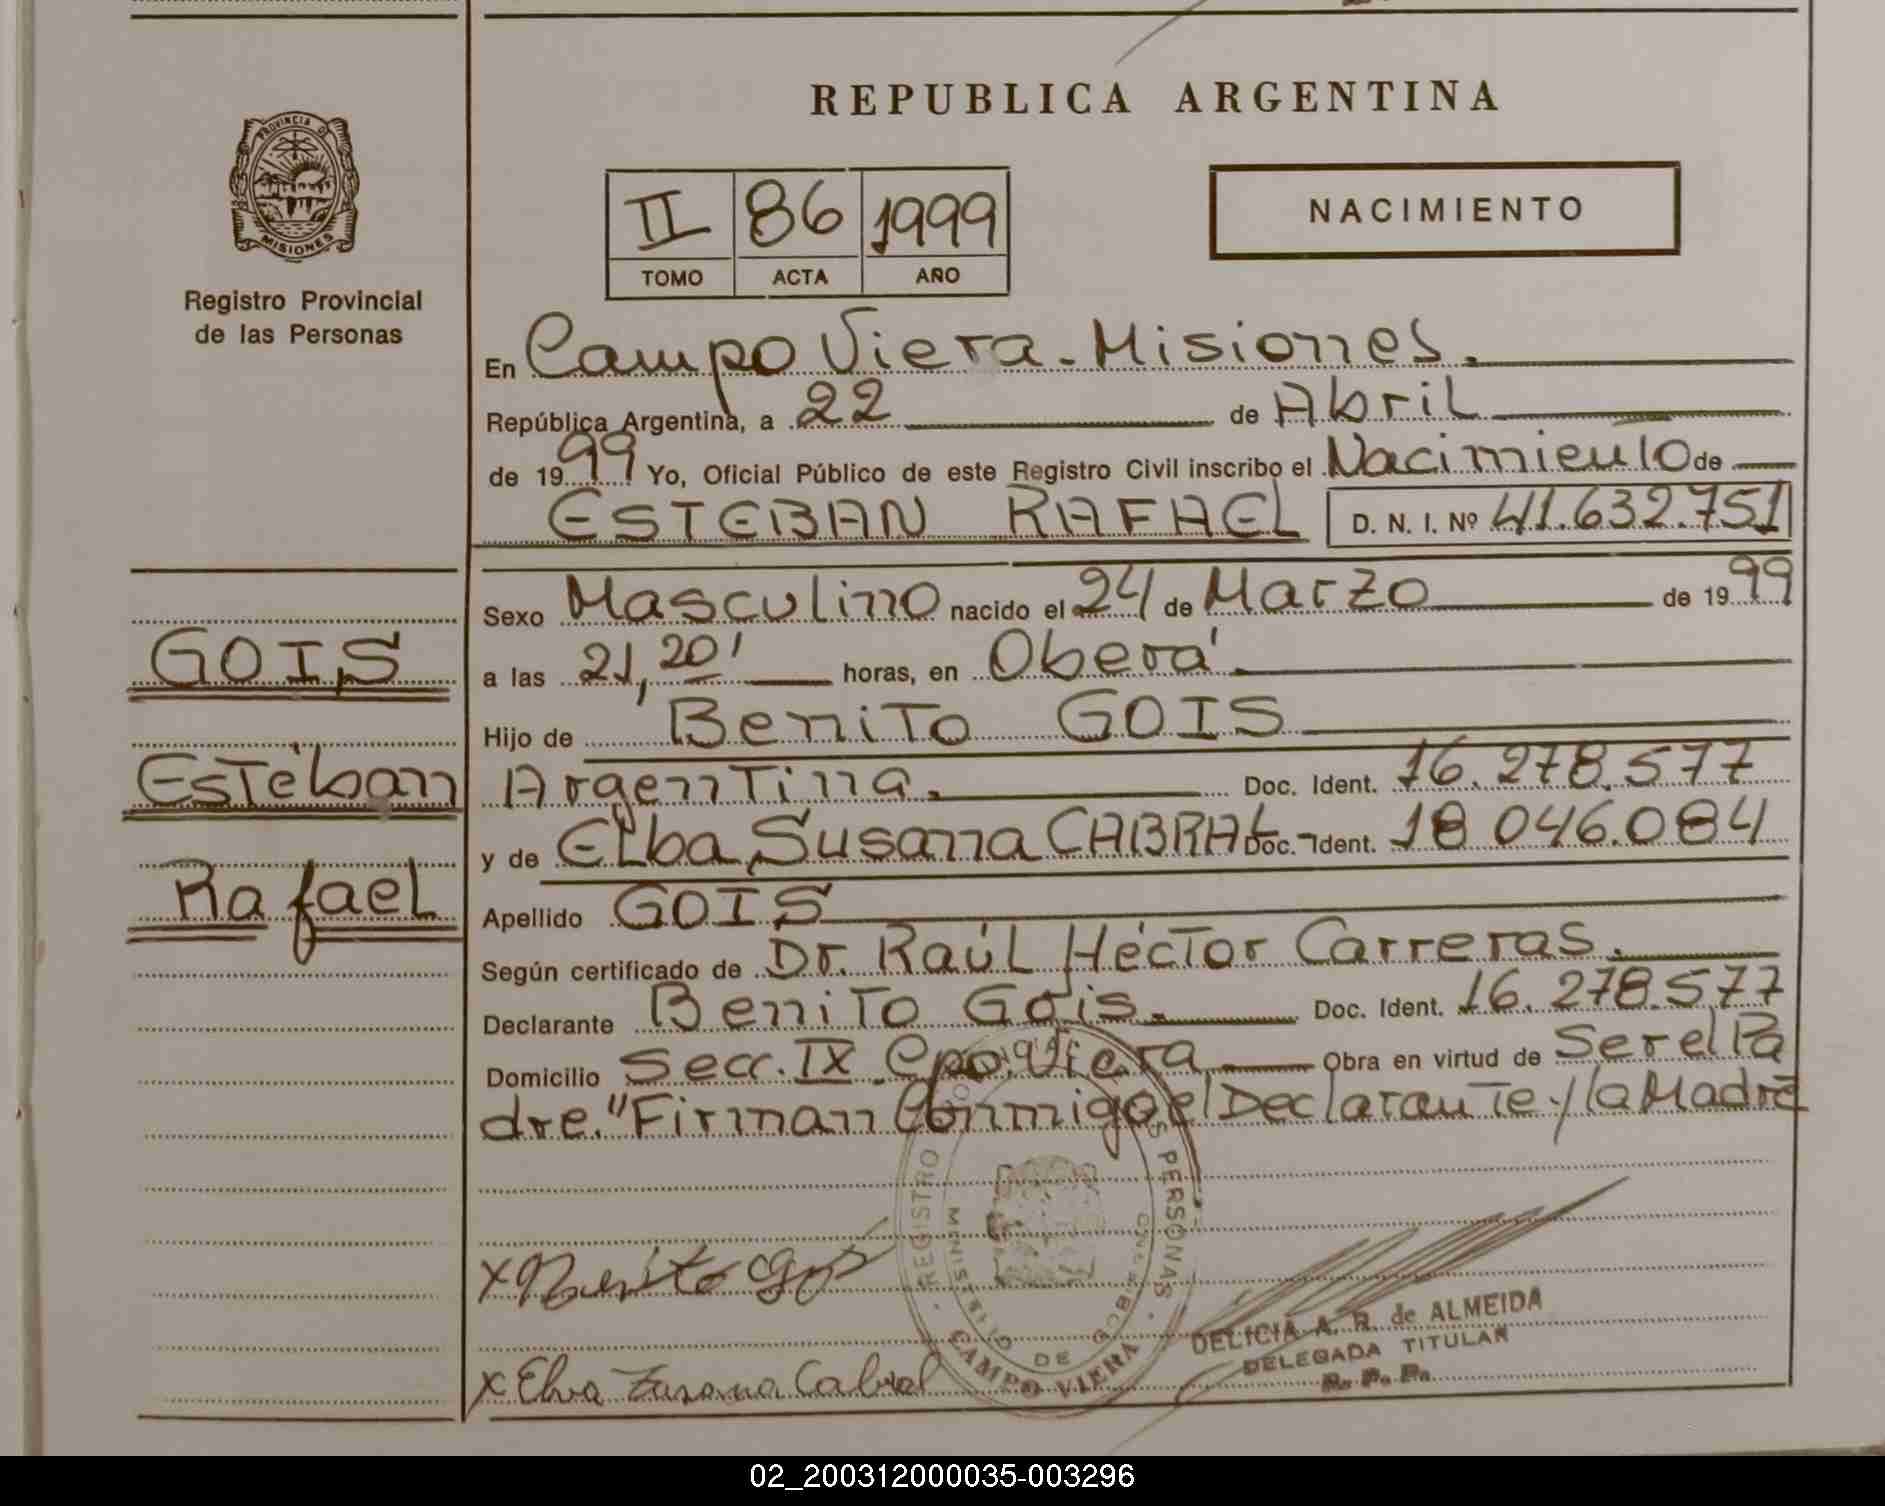 PROVINCIA DE
MISIONES
Registro Provincial
de las Personas
GOIS
Esteban
Rafael
REPUBLICA ARGENTINA
II 86 1999
TOMO ACTA AÑO
NACIMIENTO
En Campo Viera - Misiones.
República Argentina, a 22 de Abril
de 1999 Yo, Oficial Público de este Registro Civil inscribo el Nacimiento de
ESTEBAN RAFAEL D. N. I. Nº 41.632.751
Sexo Masculino nacido el 24 de Marzo de 1999
a las 21,20' horas, en Oberá
Hijo de Benito GOIS
Argentina. Doc. Ident. 16.278.577
y de Elba Susana CABRAL Doc. Ident. 18 046.084
Apellido GOIS
Según certificado de Dr. Raúl Héctor Carreras.
Declarante Benito Gois. Doc. Ident. 16.278.577
Domicilio Secc. IX Cpo. Viera Obra en virtud de Ser el Pa
dre. "Firman Conmigo el Declarante y la Madre
REGISTRO PERSONAS
DE
CAMPO VIERA
x Benito Gois
x Elva Zusana Cabral
DELICIA A. R. de ALMEIDA
DELEGADA TITULAR
R. P. P.
02_200312000035-003296